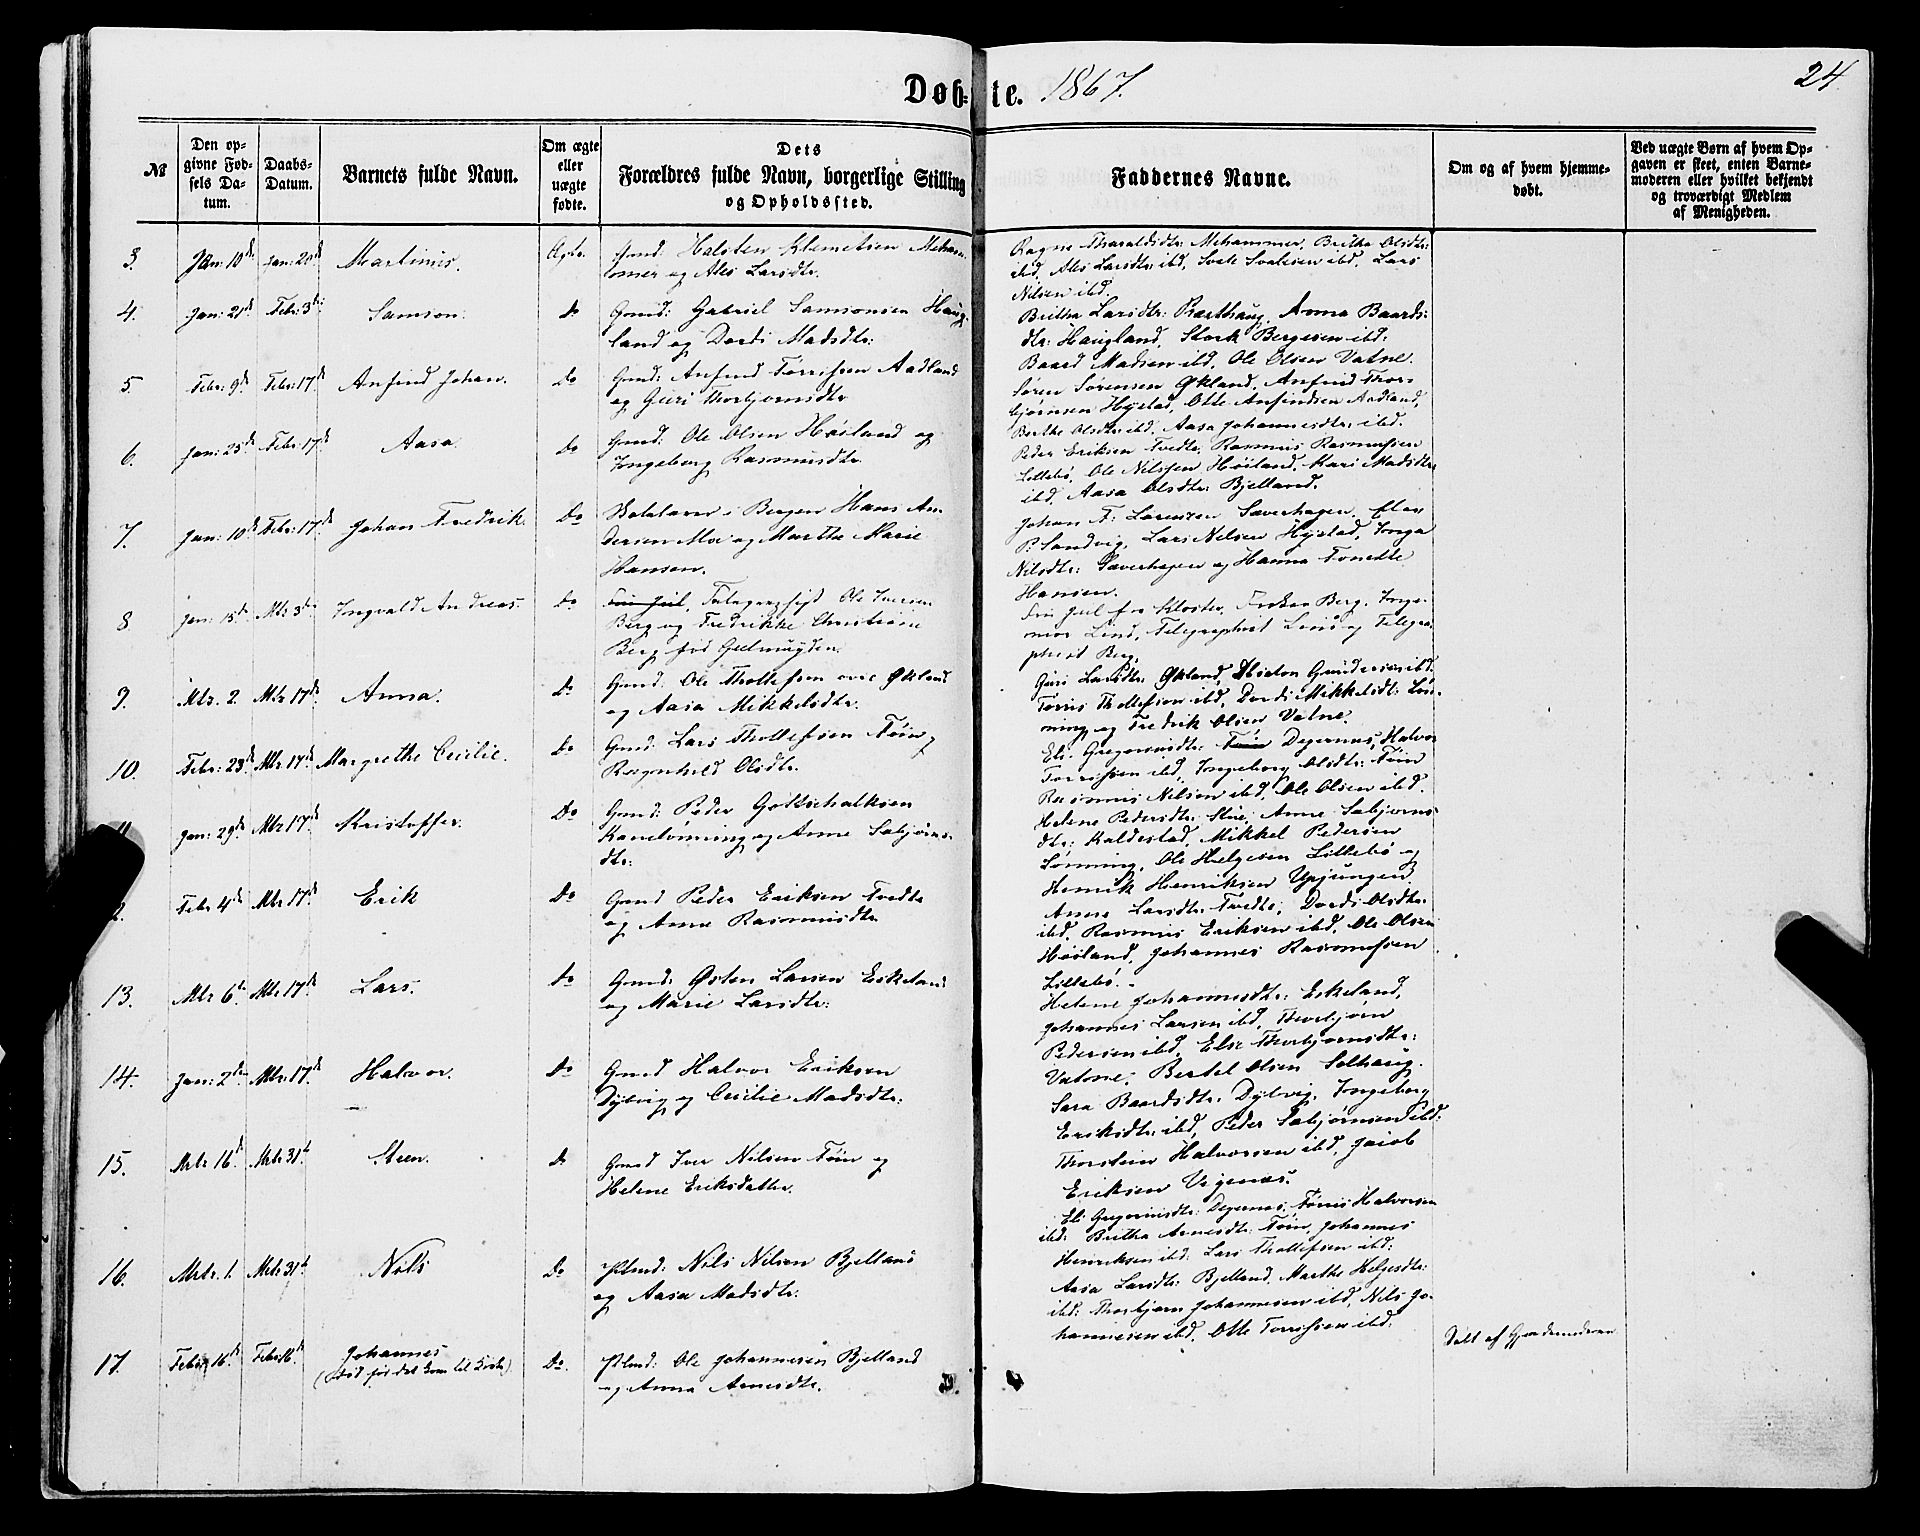 Døb-te. 1867.
24.
№
Den op-
givne Fød-
sels Da-
tum.
Daabs-
Datum.
Barnets fulde Navn.
Om ægte
eller
uægte
fødte.
Dets
Forældres fulde Navn, borgerlige Stilling
og Opholdssted.
Faddernes Navne.
Om og af hvem hjemme-
døbt.
Ved uægte Børn af hvem Op-
gaven er skeet, enten Barne-
moderen eller hvilket bekjendt
og troværdigt Medlem
af Menigheden.
3. Jan: 10de Jan: 20de Martinus. Ægte. Gmd: Halsten Klemetsen Meham-
mer og Ales Larsdtr.
Ragne Tharaldsdtr: Mehammer, Britha Olsdtr:
ibd, Ales Larsdtr ibd, Lars
Nilsen ibd.
4. Jan: 21de Febr: 3de Samson. Do Gmd: Gabriel Samsonsen Haug-
land og Dordi Madsdtr:
Britha Larsdtr: Anna Baards-
dtr: Haugland, Stork Bergesen ibd:
Baard Madsen ibd, Ole Olsen Vatne.
5. Febr: 9de Febr: 17de Anfind Johan. Do Gmd: Anfind Tørrissen Aadland
og Guri Thorbjørnsdtr
Søren Sørensen Økland, Anfind Thor-
bjørnsen Hystad, Otte Anfindsen Aadland,
Berthe Olsdtr ibd, Aasa Johannesdtr: ibd.
6. Jan: 25de Febr: 17de Aasa. Do Gmd: Ole Olsen Høiland og
Ingeborg Rasmusdtr.
Peder Eriksen Tvedte, Rasmus Rasmussen
Lillebø, Ole Nilssen Høiland, Kari Madsdtr
ibd, Aasa Olsdtr: Bjelland.
7. Jan: 10de Febr: 17de Johan Fredrik. Do i Bergen Hans An-
dersen Moe og Marthe Marie
Hansen.
Johan F: Lorenzen Saverhagen,
P: Sandvig, Lars Nilsen Hystad, Inga
Nilsdtr: Saverhagen og Hanna Tonette
Hansen.
8. Jan: 15de Mts 3de Ingvald Andreas. Do Ole Iversen
Berg og Fredrikke Christiane
Berg fød Geelmuyden.
Frk: Juul fra Kloster, Frøken Berg, Inge-
niør Lind, Telegraphist Lind og Telegra-
phist Berg.
9. Mts. 2. Mts 17de Anna. Do Gmd: Ole Thollefsen Økland
og Aasa Mikkelsdtr.
Guri Larsdtr: Økland, Gundersen ibd.
Tørris Thollefsen ibd, Dordi Mikkelsdtr: Løn-
ning og Fredrik Olsen Vatne.
10. Febr: 23de Mts 17de Margrethe Cecilie. Do Gmd: Lars Thollefsen Føin og
Ragnhild Olsdtr.
Eli Gregoriusdtr: Føin Degernes, Halvor
Tørrissen ibd, Ingeborg Olsdtr: Føin
Rasmus Nilsen ibd, Ole Olsen ibd.
Jan: 29de Mts 17de Kristoffer. Do Gmd: Peder Gotschalksen
og Anne Sæbjørns-
dtr:
Helene Pedersdtr: Anne Sæbjørns-
dtr: Kaldestad, Mikkel Pedersen
Lønning, Ole Helgesen Lillebø og
Henrik Henriksen
Febr 4de Mts 17de Erik Do Gmd Peder Eriksen Tvedte
og Anna Rasmusdtr
Anna Larsdtr: Tvedte, Dordi Olsdtr:
ibd, Rasmus Eriksen ibd, Ole Olsen
Høiland, Johannes Rasmussen
Lillebø.
13. Mts 6te Mts 17de Lars. Do Gmd: Østen Larsen Eskeland
og Marie Larsdtr:
Helene Johannesdtr: Eskeland,
Johannes Larsen ibd, Thorbjørn
Pedersen ibd, Else Thorbjørnsdtr:
Vatne, Bertel Olsen Solhaug.
14. Jan: 2den Mts 17de Halvor. Do Gmd Halvor Eriksen
Dybvig og Cecilie Madsdtr:
Sara Baardsdtr: Dybvig, Ingeborg
Eriksdtr: ibd, Peder Sæbjørnsen ibd:
Thorstein Halvorsen ibd, Jacob
Eriksen Vigenæs.
15. Mrts 16de Mrts 31te Steen. Do Gmd Iver Nilsen Føin og
Helene Eriksdatter.
Eli Gregoriusdtr: Degernes, Tørris Halvorsen
ibd: Britha Arnesdtr: Føin, Johannes
Henriksen ibd: Lars Thollefsen ibd:
16. Mrts. 1. Mrts 31te Nils Do Plmd: Nils Nilsen Bjelland
og Aasa Madsdtr:
Aasa Larsdtr: Bjelland, Marthe Helgesdtr:
ibd: Thorbjørn Johannesen ibd, Nils Jo-
hannesen ibd, Otte Tørrissen ibd:
17. Febr: 16de Febr: 16de Johannes
(død før det kom til Kirke) Do. Plmd: Ole Johannesen Bjelland
og Anna Arnesdtr.
Døbt af Gjordemoderen